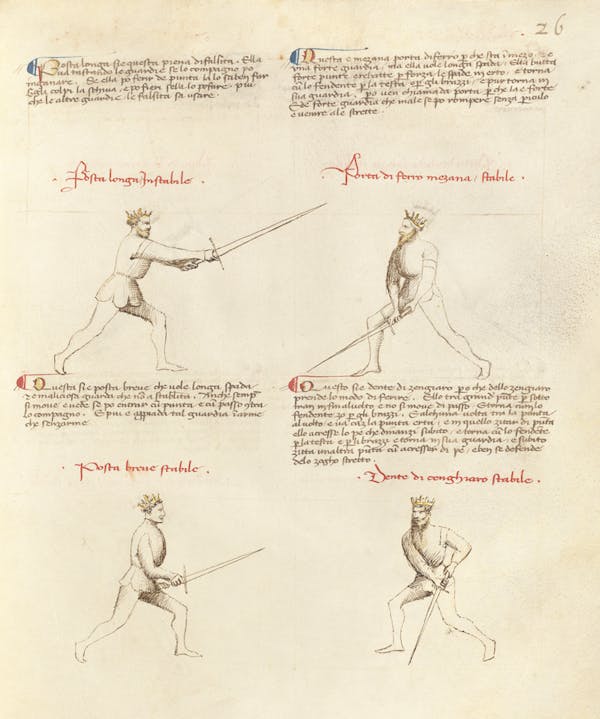 26
Posta longa si e questa piena di falsita. Ella
va tastando le guardie se lo compagno po
ingannare. Se ella po ferir de punta la lo sa ben far
e gli colpi la schiva, e po fieri s ela lo po fare, piu
che le altre guardie, le falsita sa usare.
Posta longa / instabile
Questa e mezana porta di ferro p che sta i mezo. & e
una forte guardia, ma ella vole longa spada. Ella butta
forte punte, e rebatte p forza le spade in erto, e torna
cu lo fendente p la testa, o p gli brazzi, e pur torna in
sua guardia, po ven chiamada porta p che la e forte
& de forte guardia che male se po rompere senza piculo
e venire a le strette.
Porta di ferro mezana / stabile
Questa si e posta breve che vole longa spada
& e maliciosa guardia che no a stabilita. Anche semp
si move e vede se po entrar cu punta e cu passo contra
lo compagno. E piu e appriada tal guardia i arme
che senz arme.
Posta breve stabile
Questo si e dente di zengiaro, po che dello zengiaro
prende lo modo di ferire. Ello tra grandi punte p sotto
man in fin al volto, e no si move di passo, e torna cum lo
fendente zo p gli brazzi. E alchuna volta tra la punta
al volto, e va cu la punta erta, e in quello zitar di punta
ello acresse lo pe che dinanzi subito, e torna cu lo fendente
p la testa e p li brazzi, e torna in sua guardia, e subito
zitta un altra punta cu acresser di pe, e ben se defende
delo zogho stretto.
Dente di cenghiaro stabile